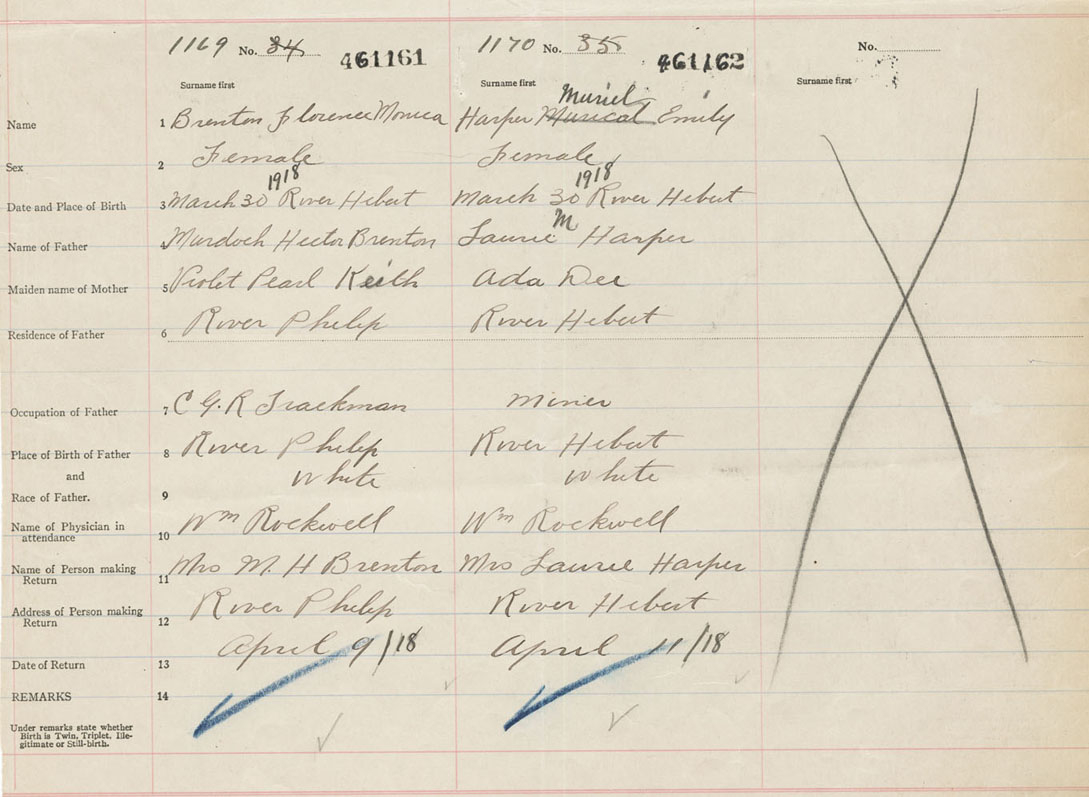 1169 No. 34 461161 1170 No. 35 461162 No.
Surname first Surname first Surname first
Muriel
Name 1 Brenton Florence Monica Harper Murical Emily
Sex 2 Female Female
1918 1918
Date and Place of Birth 3 March 30 River Hebert March 30 River Hebert
M
Name of Father 4 Murdoch Hector Brenton Laurie Harper
Maiden name of Mother 5 Violet Pearl Keith Ada Dee
Residence of Father 6 River Philip River Hebert
Occupation of Father 7 C G. R Trackman Miner
Place of Birth of Father 8 River Philip River Hebert
and White White
Race of Father. 9
Name of Physician in Wm Rockwell Wm Rockwell
attendance 10
Name of Person making Mrs M. H Brenton Mrs Laurie Harper
Return 11
Address of Person making River Philip River Hebert
Return 12
Date of Return 13 April 9/18 April 11/18
REMARKS 14
Under remarks state whether
Birth is Twin, Triplet, Ille-
gitimate or Still-birth.